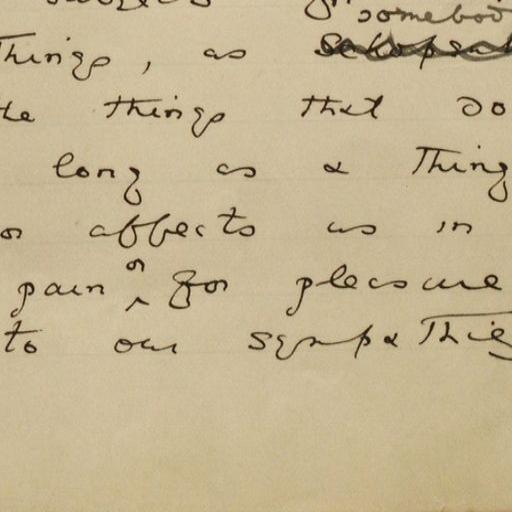 somebod
Things, as
the things that do
long as a Thing
or affects us in
pain or for pleasure
to our sympathie